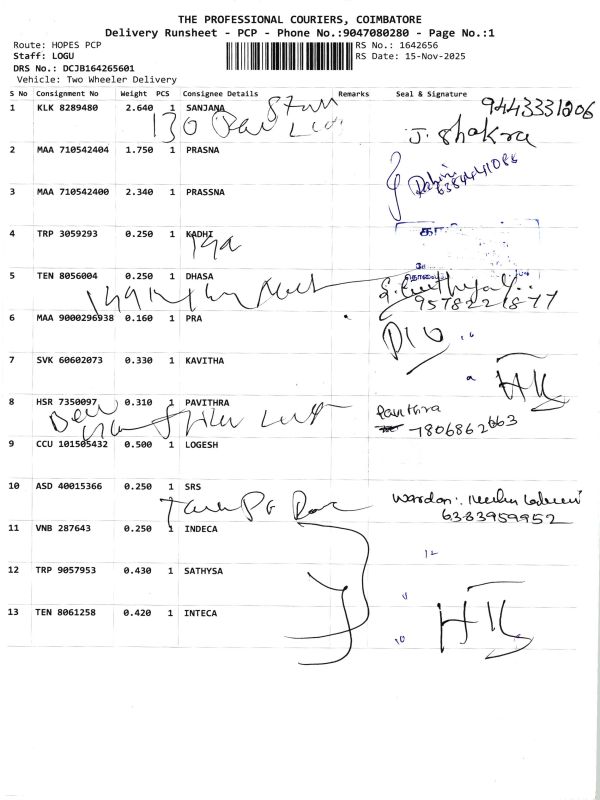 THE PROFESSIONAL COURIERS, COIMBATORE
Delivery Runsheet - PCP - Phone No.:9047080280 - Page No.:1
Route: HOPES PCP
Staff: LOGU
DRS No.: DCJB164265601
Vehicle: Two Wheeler Delivery
RS No.: 1642656
RS Date: 15-Nov-2025
S No Consignment No Weight PCS Consignee Details Remarks Seal & Signature
9443331206
1 KLK 8289480 2.640 1 SANJANA
130
J. Shakra
2 MAA 710542404 1.750 1 PRASNA
6384441086
3 MAA 710542400 2.340 1 PRASSNA
4 TRP 3059293 0.250 1 KADHI
5 TEN 8056004 0.250 1 DHASA
9578221877
6 MAA 9000296938 0.160 1 PRA
7 SVK 60602073 0.330 1 KAVITHA
8 HSR 7350097 0.310 1 PAVITHRA
Pavithra
7806862663
9 CCU 101505432 0.500 1 LOGESH
10 ASD 40015366 0.250 1 SRS
Wardan:
6383959952
11 VNB 287643 0.250 1 INDECA
12
12 TRP 9057953 0.430 1 SATHYSA
13 TEN 8061258 0.420 1 INTECA
10